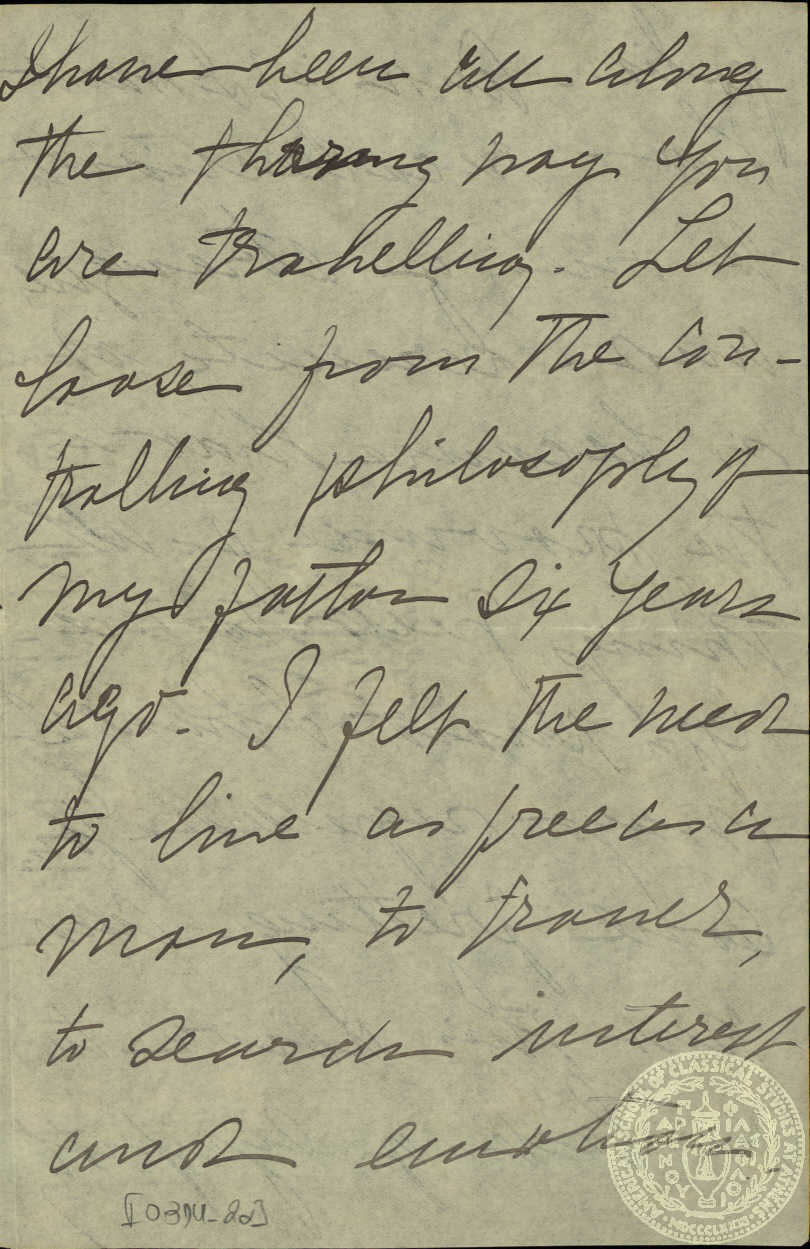 I have been all along
the thorny way you
are travelling. Let
loose from the con-
trolling philosophy of
my father six years
ago. I felt the need
to live as free as a
man, to travel,
to search interest
and emotion.
AMERICAN SCHOOL OF CLASSICAL STUDIES AT ATHENS
MDCCCLXXXI